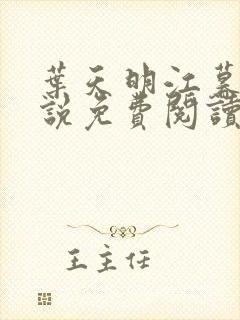 葉天明江暮
說免費閱讀
王主任